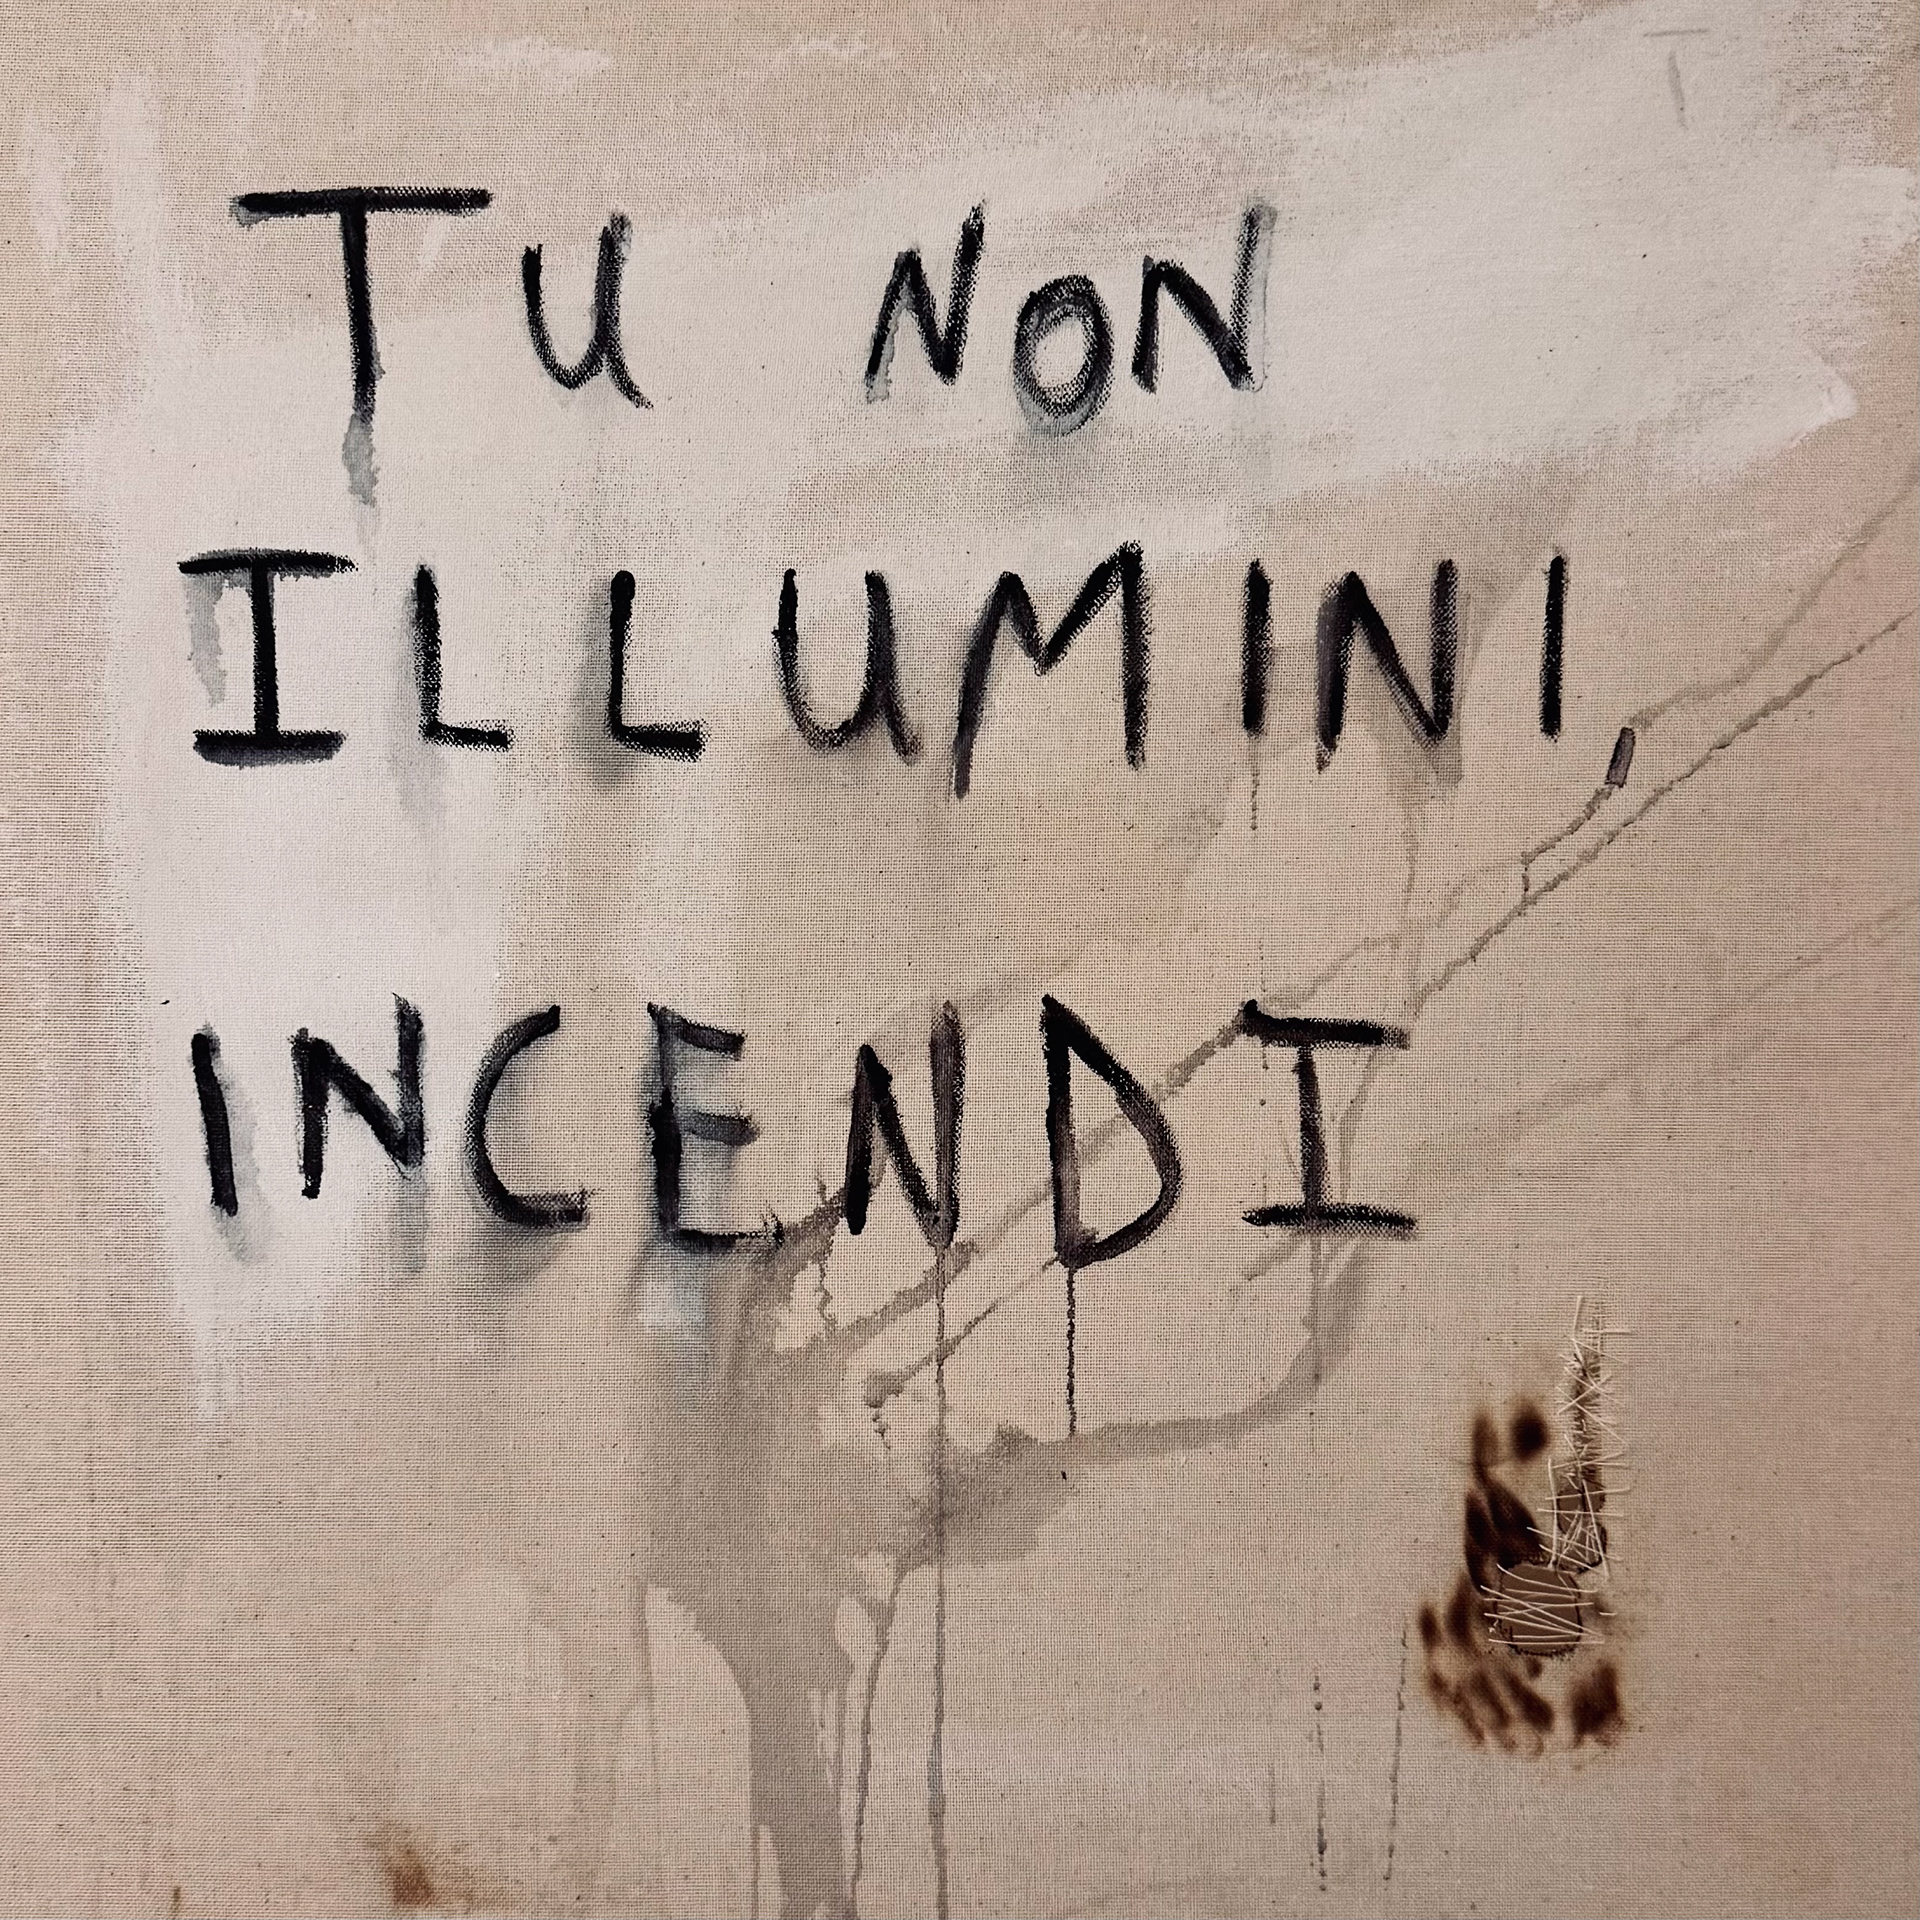 TU NON
ILLUMINI,
INCENDI